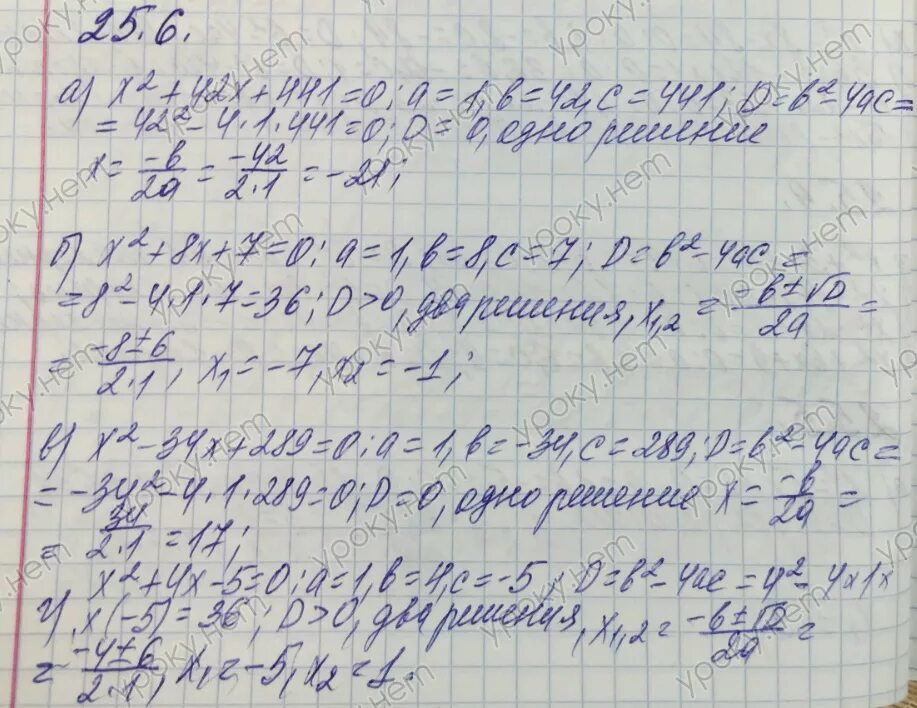 25.6.
а) x²+42x+441=0; a=1, в=42, c=441; D=в²-4ac=
=42²-4·1·441=0; D=0, одно решение
x=-в/2a=-42/2·1=-21;
б) x²+8x+7=0; a=1, в=8, c=7; D=в²-4ac=
=8²-4·1·7=36; D>0, два решения, x1,2=-в±√D/2a=
=-8±6/2·1, x1=-7, x2=-1;
в) x²-34x+289=0; a=1, в=-34, c=289; D=в²-4ac=
=-34²-4·1·289=0; D=0, одно решение x=-в/2a=
=34/2·1=17;
x²+4x-5=0; a=1, в=4, c=-5, D=в²-4ac=4²-4×1×
г) ×(-5)=36; D>0, два решения, x1,2=-в±√D/2a=
=-4±6/2·1, x1=-5, x2=1.
уроку.нет